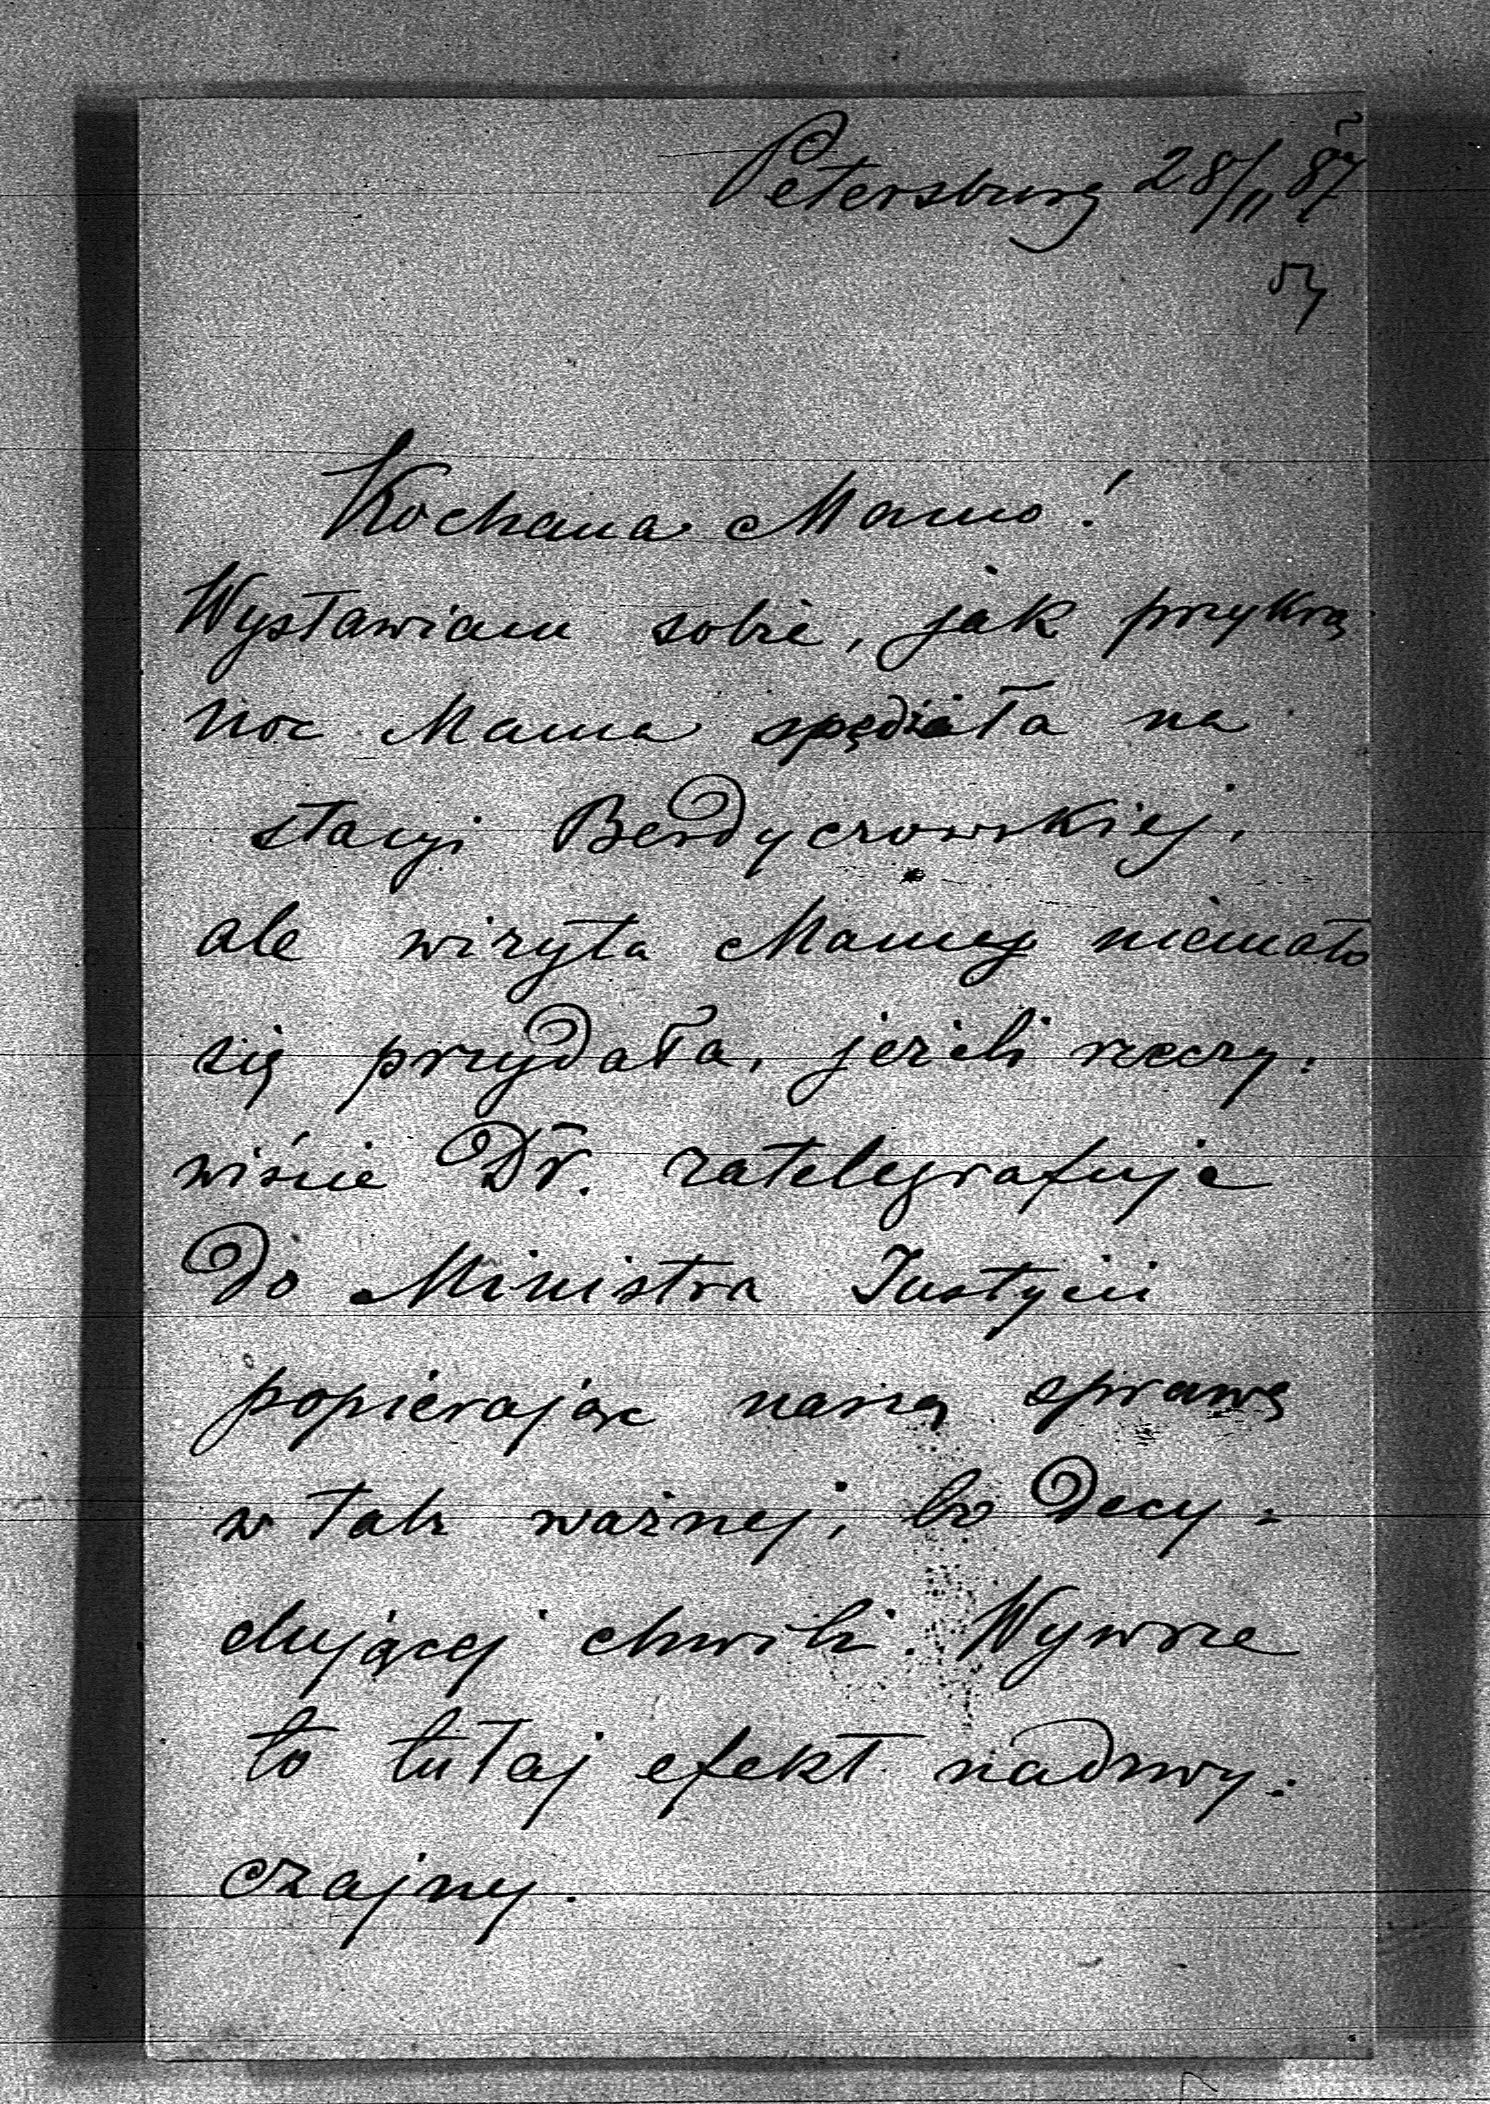 Petersburg 28/11 87
57
Kochana Mamo!
Wystawiam sobie, jak przykrą
noc Mama spędziła na
stacyi Berdyczowskiej,
ale wizyta Mamy niemało
się przydała, jeżeli rzeczy-
wiście Dr. zatelegrafuje
do Ministra Justycii
popierając naszą sprawę
w tak ważnej, bo decy-
dującej chwili. Wywrze
to tutaj efekt nadzwy-
czajny.